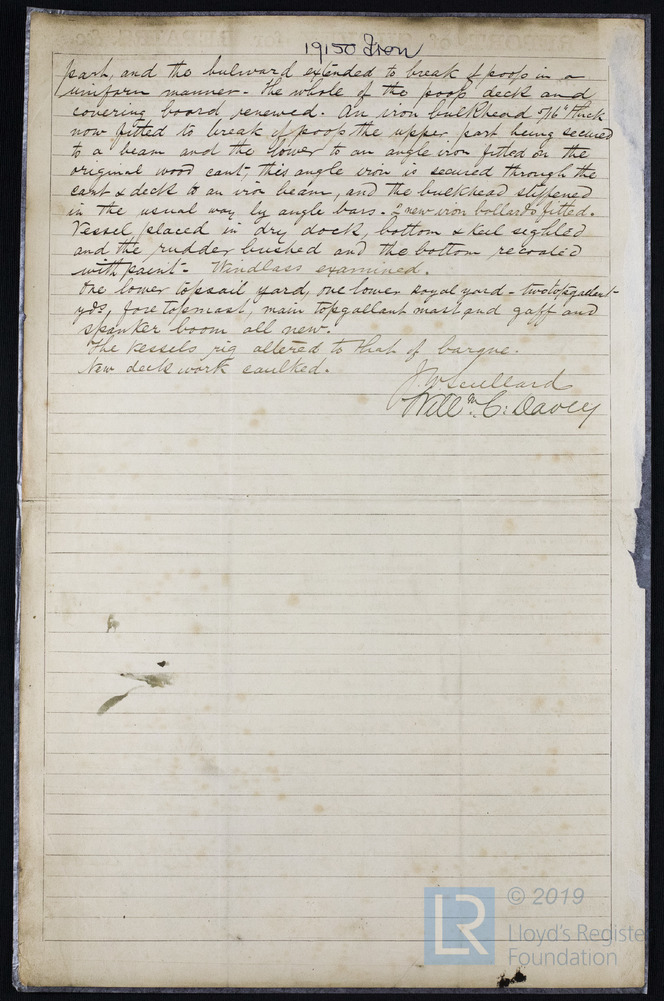 19150 Iron
part, and the bulward extended to break of poop in a
uniform manner - the whole of the poop deck and
covering board renewed. An iron bulkhead 7/16" thick
now fitted to break of poop the upper part being secured
to a beam and the lower to an angle iron fitted on the
original wood cant, this angle iron is secured through the
cant & deck to an iron beam, and the bulkhead stiffened
in the usual way by angle bars. - 2 new iron bollards fitted.
Vessel placed in dry dock, bottom & keel sighted
and the rudder bushed and the bottom recoated
with paint - Windlass examined.
One lower topsail yard, one lower royal yard - two topgallant
yds, fore topmast, main topgallant mast and gaff and
spanker boom all new.
The vessels rig altered to that of barque.
New deck work caulked.
J. W. Scullard
Will.m C: Davey
LR
© 2019
Lloyd's Registe
Foundation